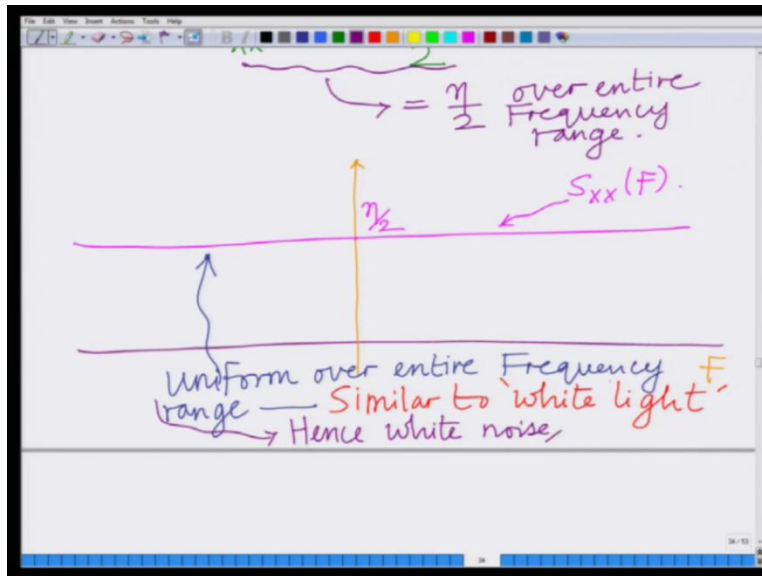 File Edit View Insert Actions Tools Help
xx 2
= η/2 over entire
Frequency
range.
S_XX (F).
η/2
Uniform over entire Frequency F
range — Similar to 'white light'
Hence white noise,
34 / 53
34